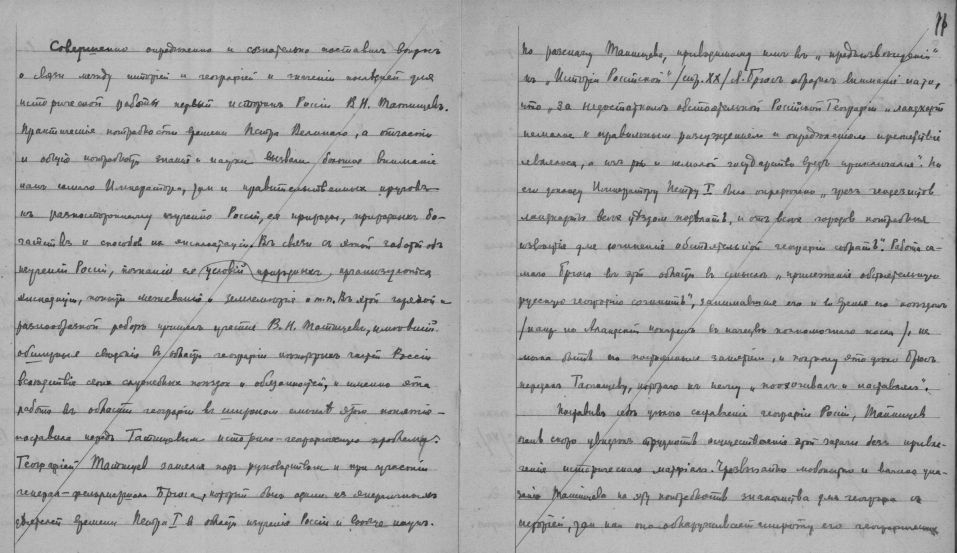 Совершенно определенно и сознательно поставил вопрос
о связи между историей и географией и значении последней для
исторической работы первый историк России В.Н. Татищев.
Практические потребности времени Петра Великого, а отчасти
и общую потребность знаний и науки вызвали большое внимание
как самого Императора, так и правительственных кругов
к разностороннему изучению России, ея природы, природных бо-
гатств и способов их эксплоатации. В связи с этой заботой об
изучении России, познании ее условий природных, организуются
экспедиции, попытки межевания и землемерия и т.п. В этой горячей и
разнообразной работе принимал участие В.Н. Татищев, имевший
обширныя сведения в области географии некоторых частей России
вследствие своих служебных поездок и обязанностей, и именно эта
работа в области географии в широком смысле этого понятия
поставила перед Татищевым историко-географическую проблему.
Географией Татищев занялся под руководством и при участии
генерал-фельдмаршала Брюса, который был одним из энергичных
деятелей времени Петра I в области изучения России и наук.
76
По рассказу Татищева, приводимому им в „предъизвещении"
к „Истории Российской" /стр. XX/ Я. Брюс обратил внимание царя,
что „за недостатком обстоятельной Российской Географии
и правильным разсуждением и определением препятствие
являлося, а из и немалой государству вред приключался". По
его докладу Императору Петру I было определено „чрез геодезистов
ландкарты всем уездам поделать, и от всех городов потребныя
известия для сочинения обстоятельной географии собрать. Работа са-
мого Брюса в этой области в смысле „прилежания обстоятельную
русскую географию сочинить", занимавшая его и во время его поездок
/напр. на Аландский конгресс в качестве полномочного посла/, не
могла быть его постоянным занятием, и поэтому это дело Брюс
передал Татищеву, которого к нему „поохочивал и наставлял".
Поставив себе целью составление географии России, Татищев
очень скоро увидел трудность осуществления этой задачи без привле-
чения исторического материала. Чрезвычайно любопытно и важно ука-
зание Татищева на эту потребность знакомства для географа с
историей, так как она обнаруживает широту его географических